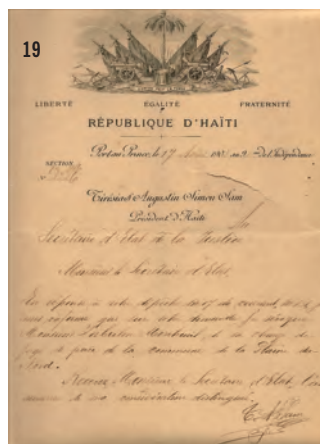 19
LIBERTÉ ÉGALITÉ FRATERNITÉ
RÉPUBLIQUE D'HAÏTI
Port-au-Prince, le 19 de l'Indépendance
SECTION
N°
Tirésias Augustin Simon Sam
Président d'Haïti
Secrétaire d'Etat de la Justice
Monsieur le Secrétaire d'Etat,
En réponse à votre dépêche du 17 du courant,
que sur votre demande je
Monsieur de sa charge de
juge de paix de la commune de la Plaine du
Nord.
Recevez, Monsieur le Secrétaire d'Etat, l'as
surance de ma considération distinguée.
T. S. Sam